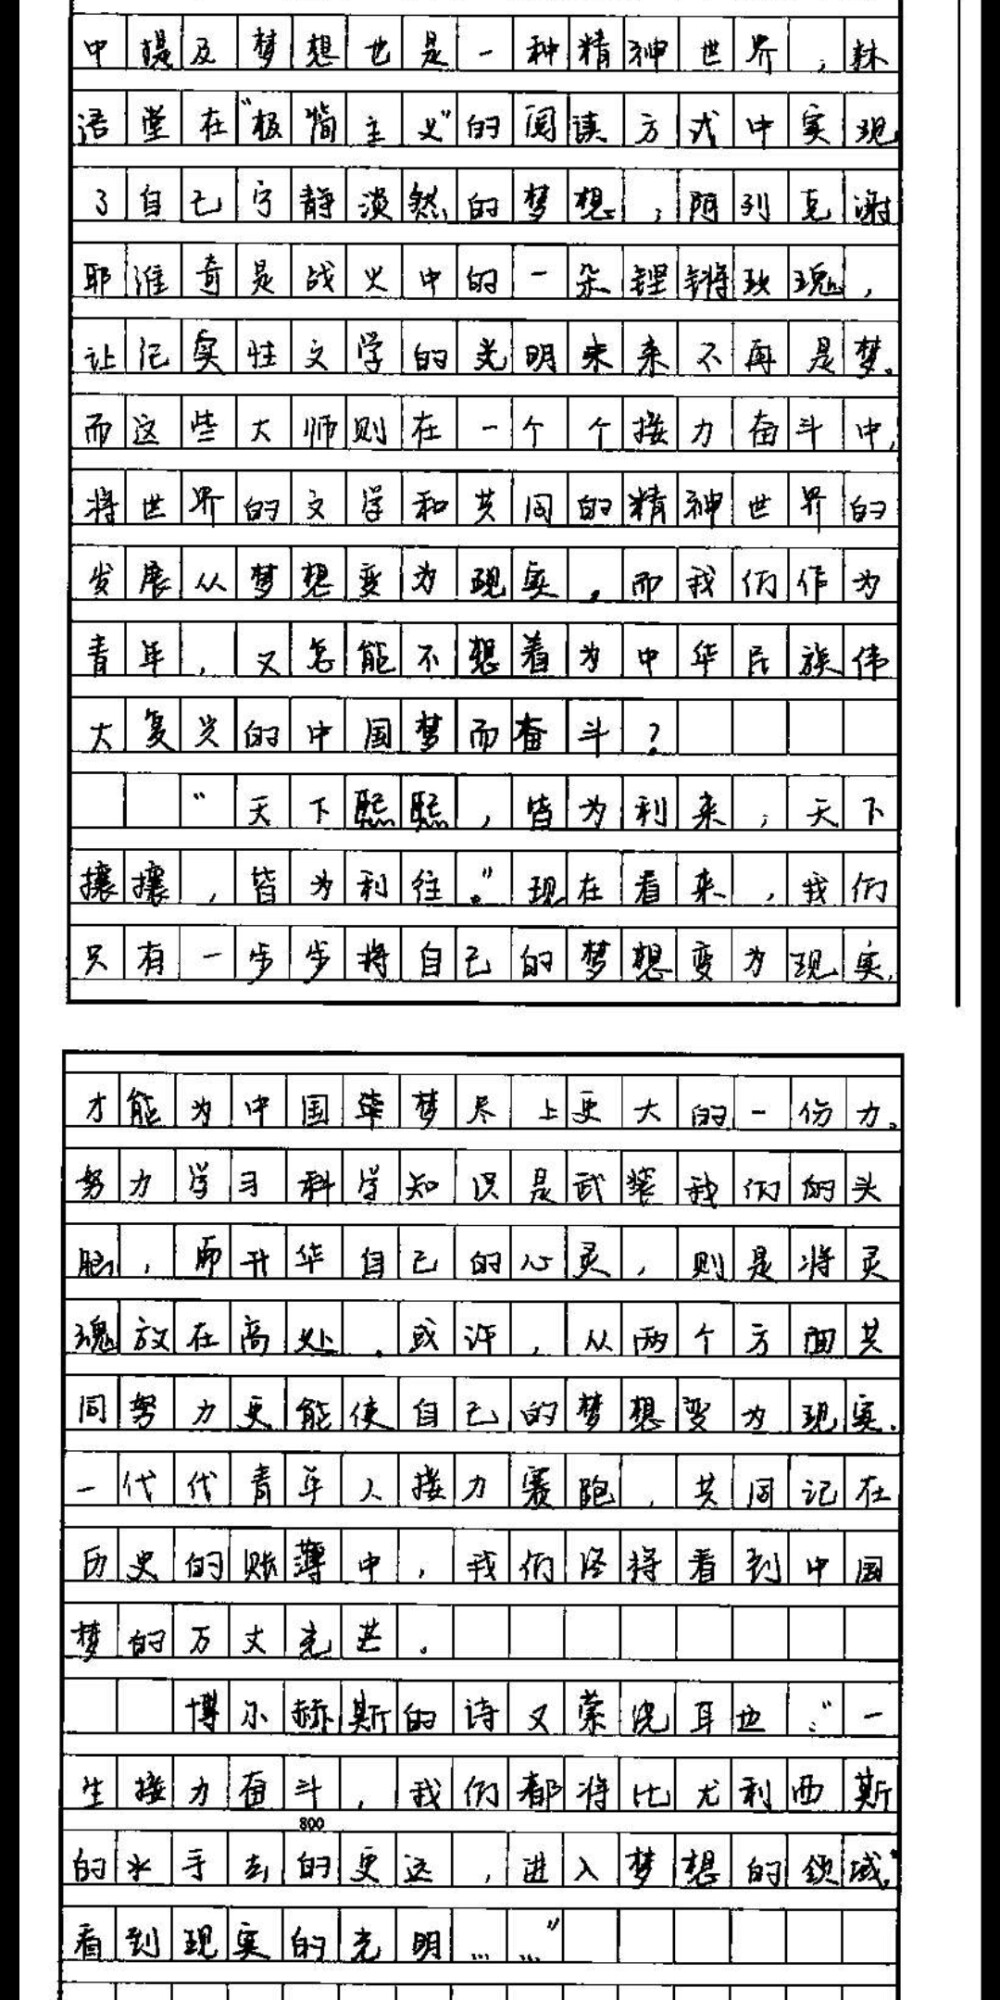 中提及梦想也是一种精神世界，林
语堂在“极简主义”的阅读方式中实现
了自己宁静淡然的梦想，阿列克谢
耶维奇是战火中的一朵铿锵玫瑰，
让纪实性文学的光明未来不再是梦。
而这些大师则在一个个接力奋斗中，
将世界的文学和共同的精神世界的
发展从梦想变为现实。而我们作为
青年，又怎能不想着为中华民族伟
大复兴的中国梦而奋斗？
“天下熙熙，皆为利来；天下
攘攘，皆为利往。”现在看来，我们
只有一步步将自己的梦想变为现实，
才能为中国梦尽上更大的一份力。
努力学习科学知识是武装我们的头
脑，而升华自己的心灵，则是将灵
魂放在高处。或许，从两个方面共
同努力更能使自己的梦想变为现实.
一代代青年人接力赛跑，共同记在
历史的账薄中，我们终将看到中国
梦的万丈光芒。
博尔赫斯的诗又萦绕耳边：“一
生接力奋斗，我们都将比尤利西斯
800
的水手去的更远，进入梦想的领域，
看到现实的光明……”